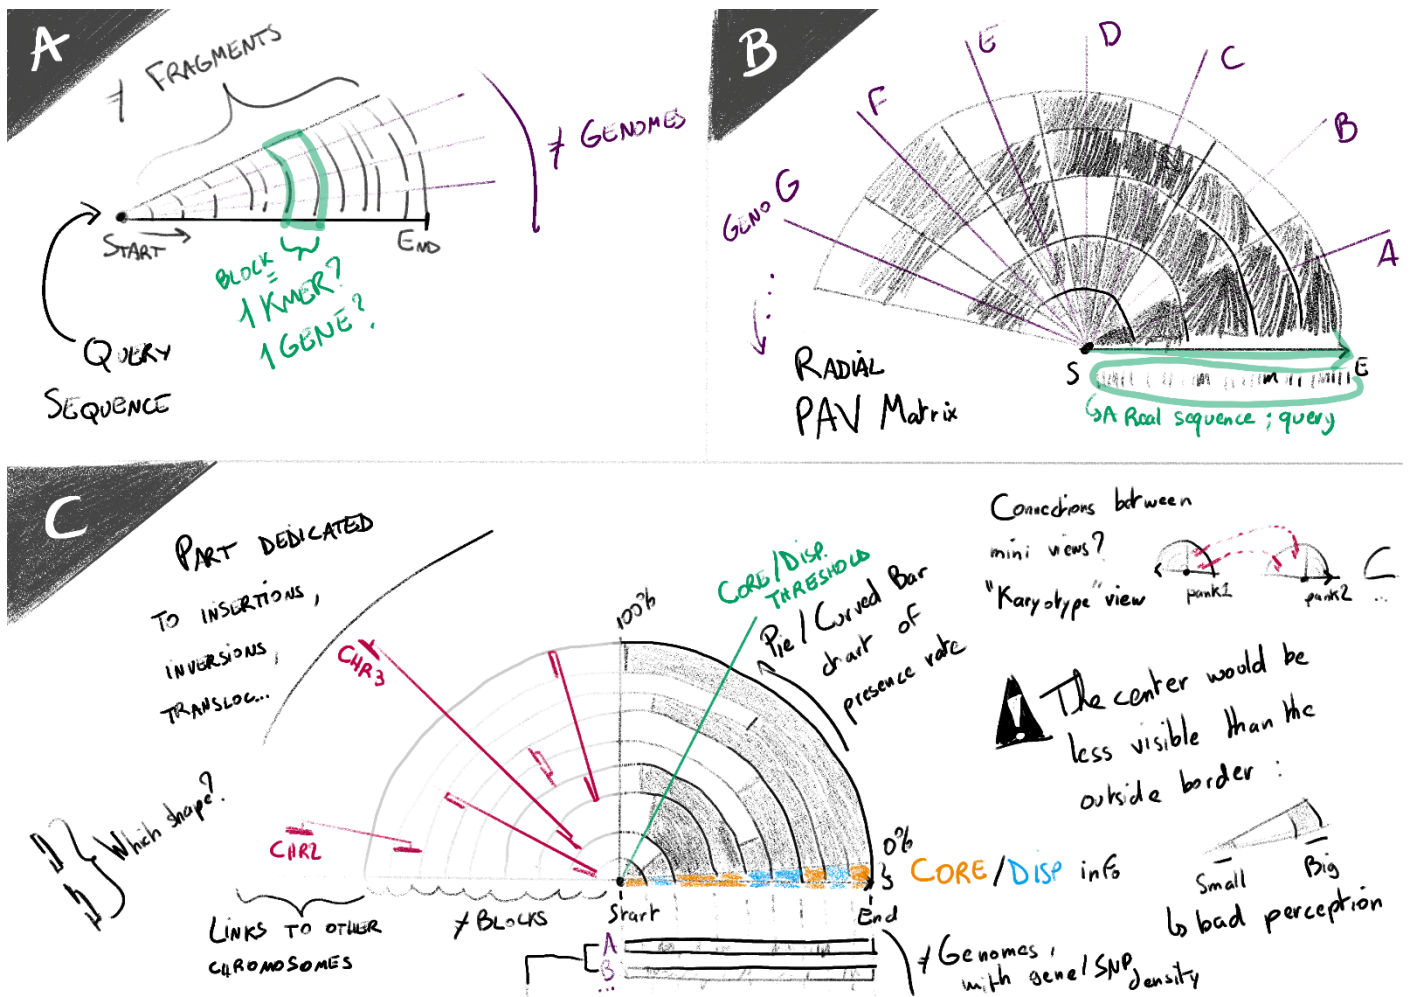 A
≠ FRAGMENTS
≠ GENOMES
START
END
BLOCK
=
1 KMER?
1 GENE?
QUERY
SEQUENCE
B
GENO G
F
E
D
C
B
A
S
E
A Real sequence ; query
RADIAL
PAV Matrix
C
PART DEDICATED
TO INSERTIONS,
INVERSIONS,
TRANSLOC...
Which shape?
CHR3
CHR2
LINKS TO OTHER
CHROMOSOMES
≠ BLOCKS
100%
CORE/DISP.
THRESHOLD
Pie / Curved Bar
chart of
presence rate
0%
CORE/DISP info
Start
End
A
B
...
≠ Genomes,
with gene/SNP
density
Connections between
mini views?
"Karyotype" view
pank1
pank2
...
!
The center would be
less visible than the
outside border :
Small
Big
bad perception